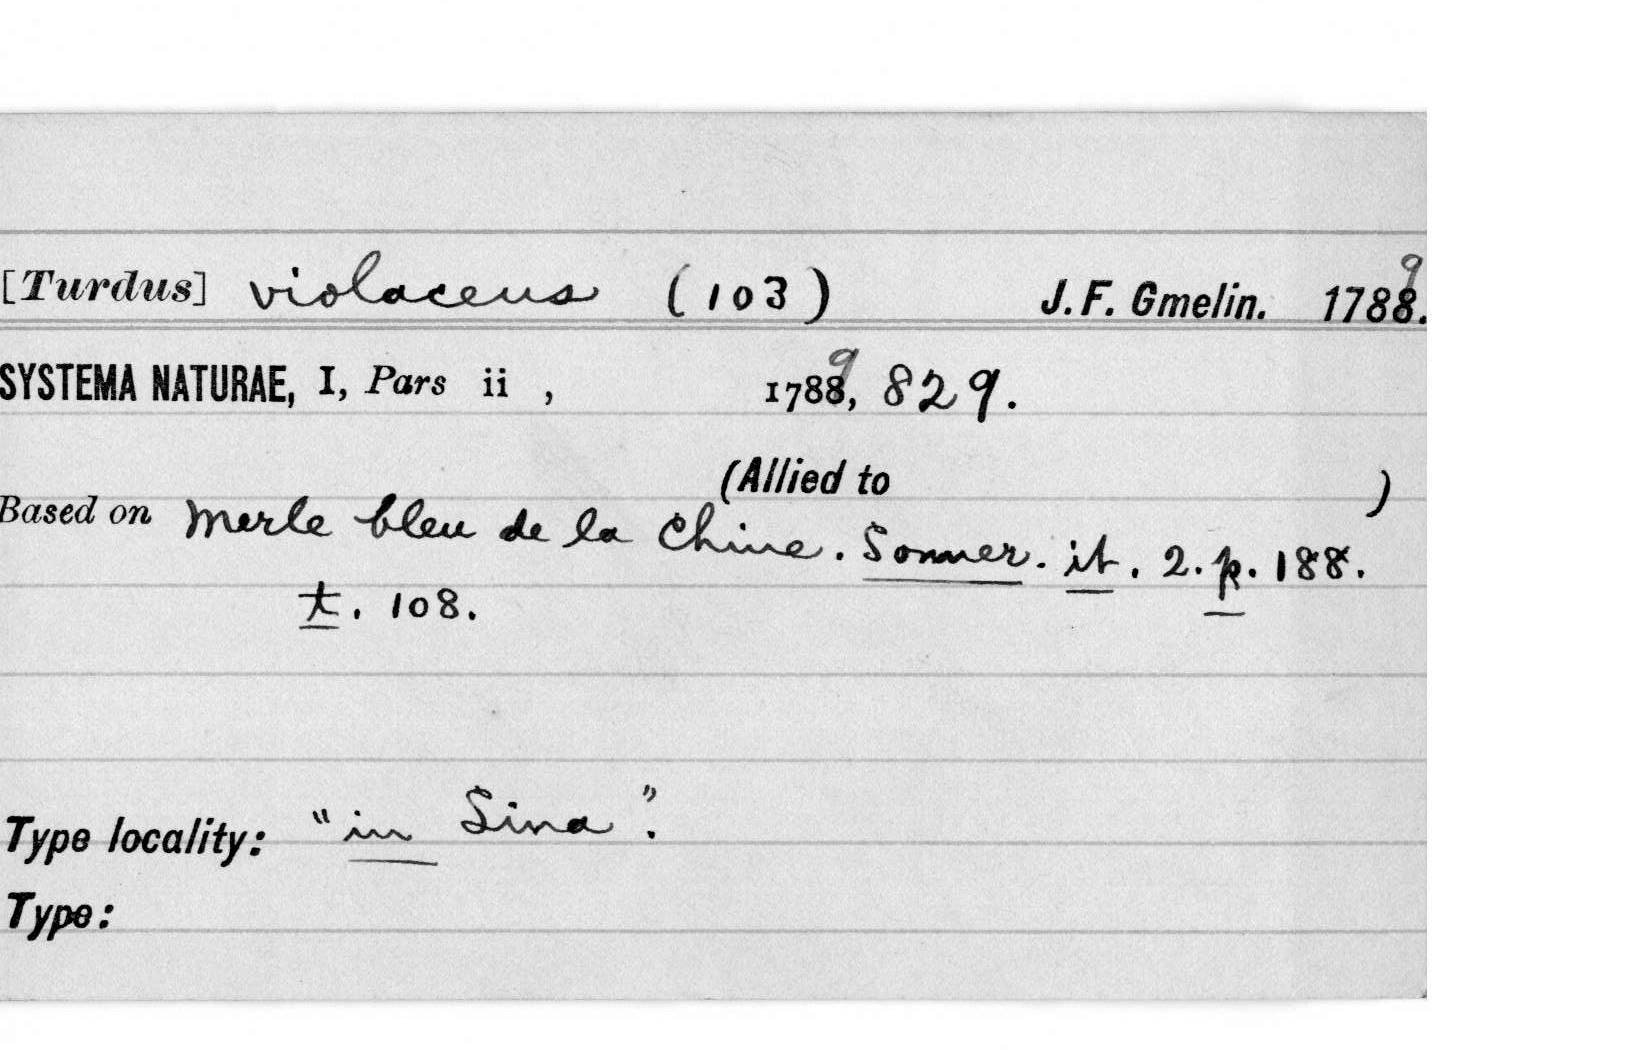 [Turdus] violaceus (103) J. F. Gmelin. 1788. 9
SYSTEMA NATURAE, I, Pars ii , 1788, 9 829.
(Allied to )
Based on Merle bleu de la Chine. Sonner. it. 2. p. 188.
t. 108.
Type locality: "in Sina".
Type: